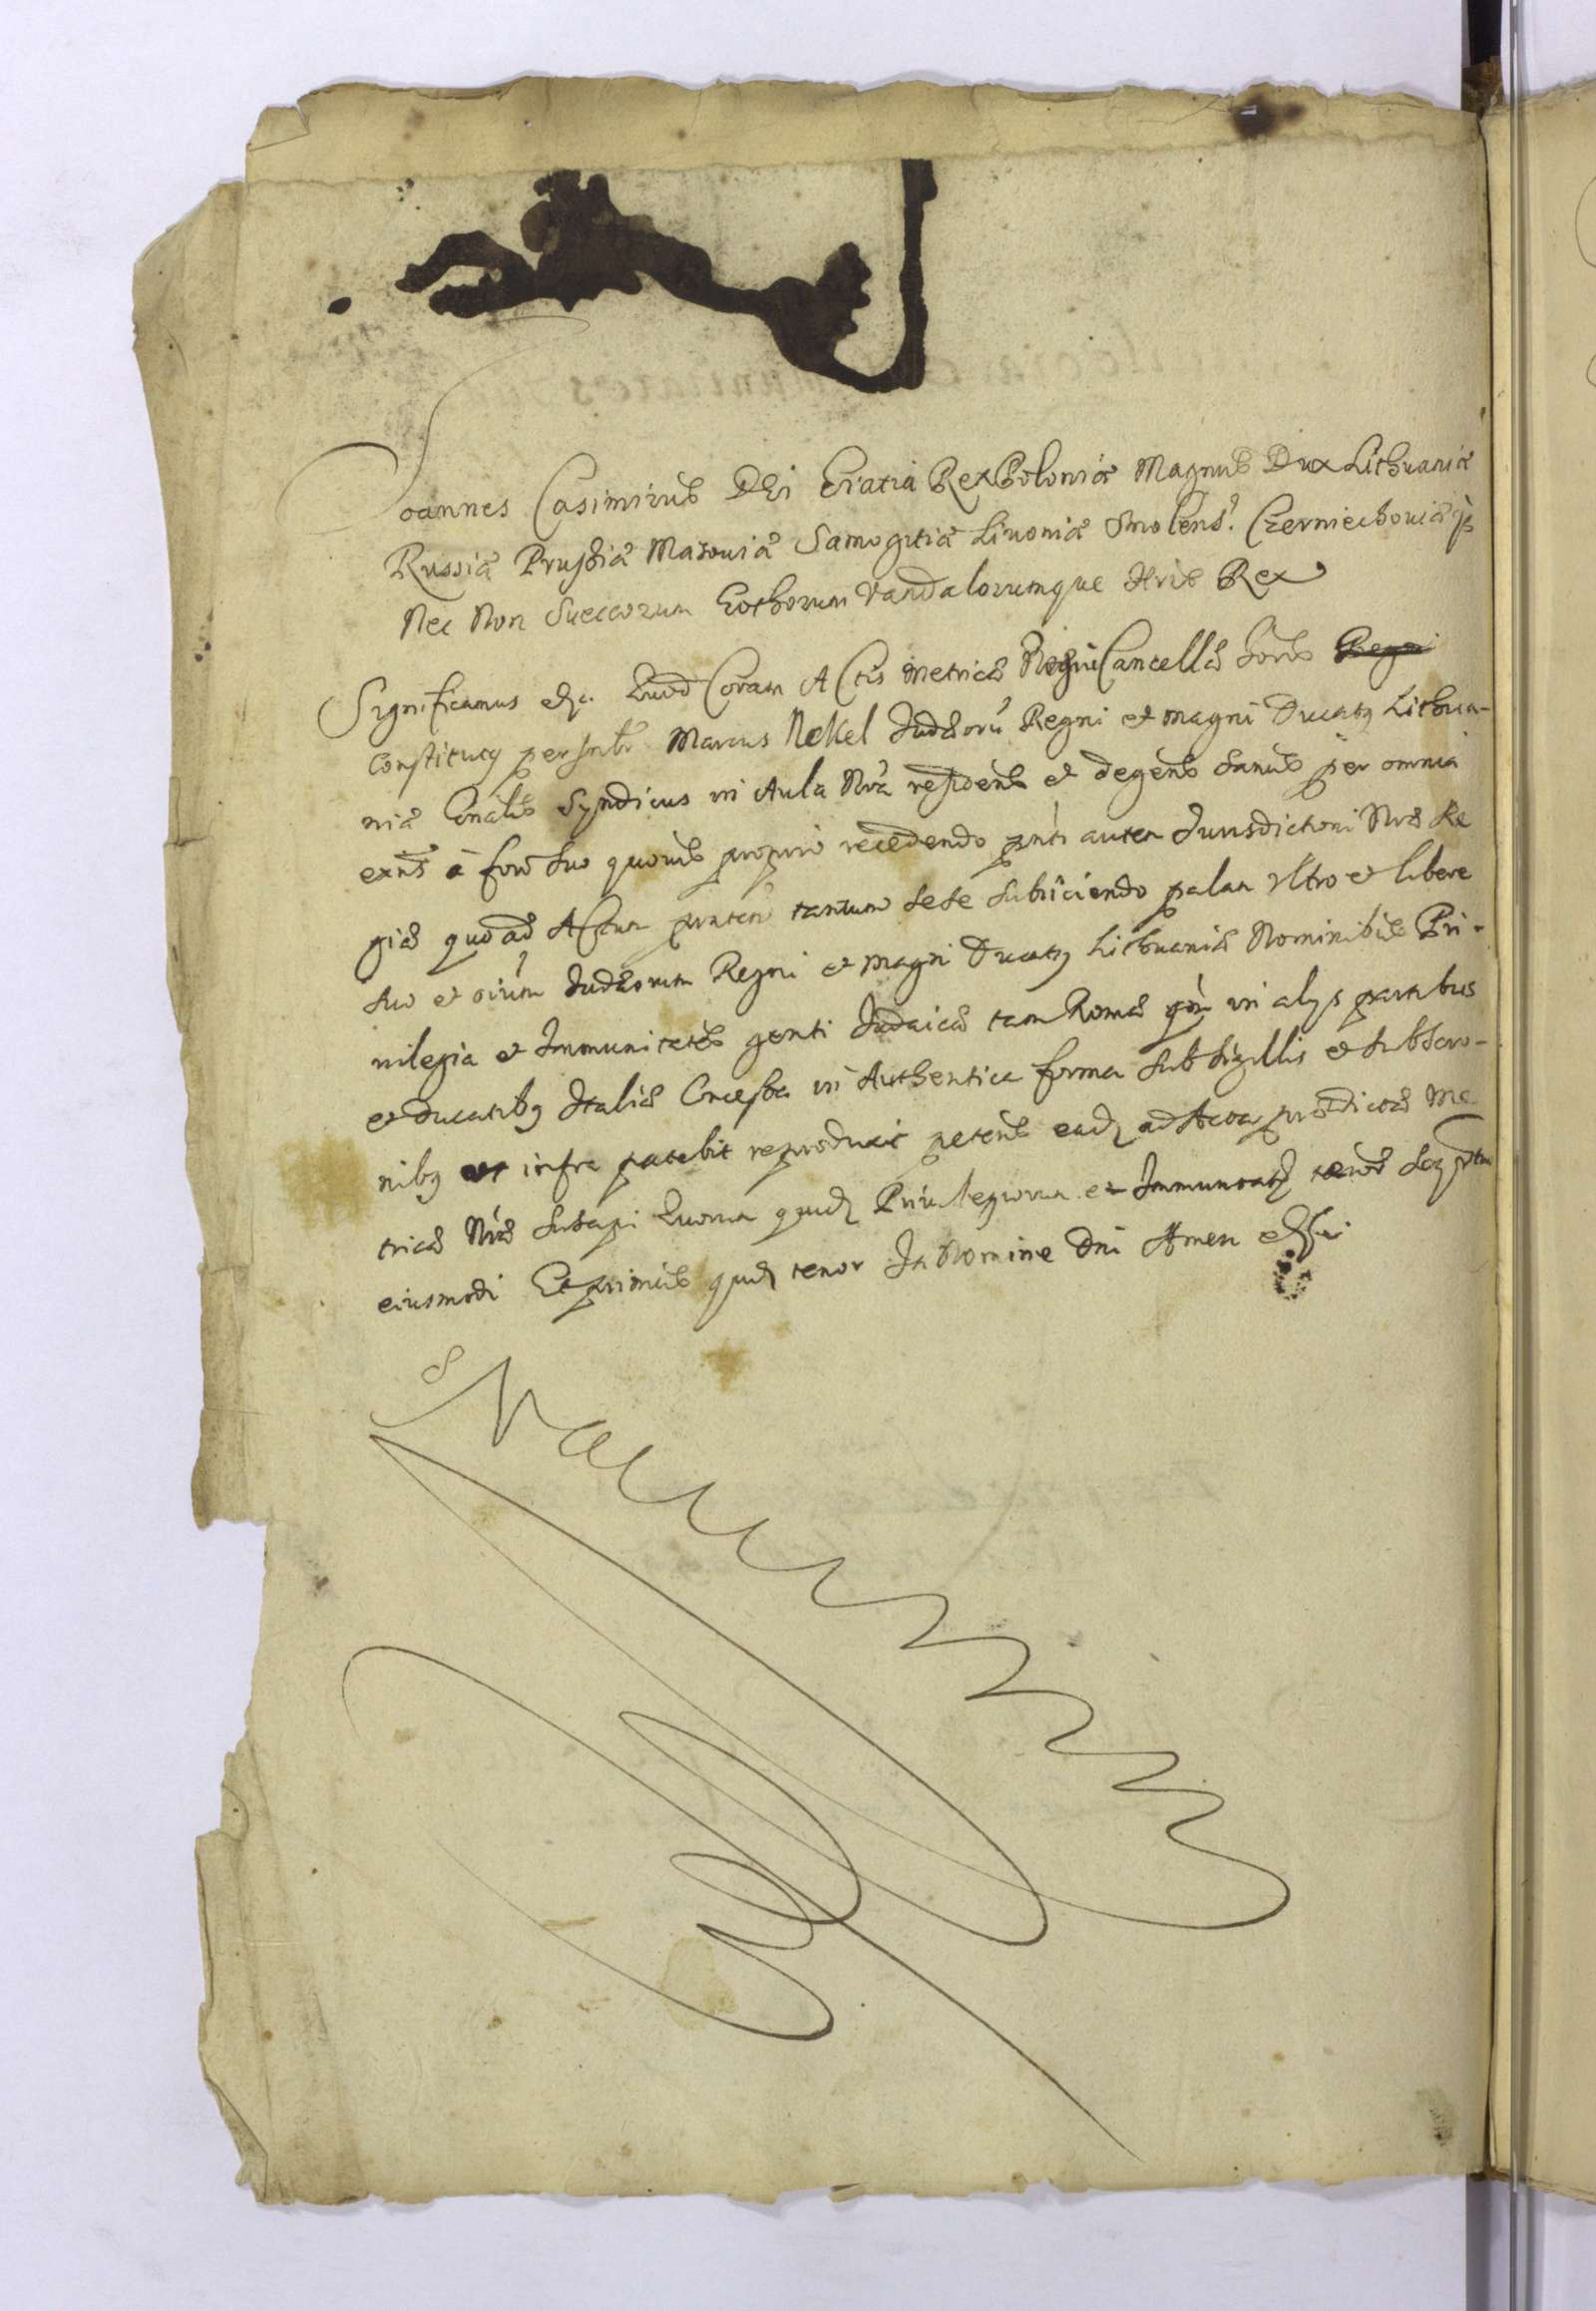 Joannes Casimirus DEi Gratia Rex Poloniæ Magnus Dux Lithuaniæ
Russiæ Prussiæ Masouiæ Samogitiæ Liuoniæ Smolens: Czerniechouiæqȝ
Nec Non Sueccorum Gothorum Vandalorumque Hris Rex
Significamus etc. Quod Coram Actis Metricæ Regni Cancellæ
Constitutȝ personlr Marcus Nekel Judæorũ Regni et Magni Ducatȝ Lithua-
niæ Gnalis Syndicus in Aula Nrã residens et degens sanus per omnia
exñs à foro suo quouis proprio recedendo pñti autem Jurisdictioni Nræ Re
giæ quoad Actum pñtem tantum sese subijciendo palam vltro et libere
suo et oium Judæorum Regni et Magni Ducatȝ Lithuaniæ Nominibus Pri-
uilegia et Immunitates genti Judaicæ tam Romæ qm in alijs partibus
et Ducatibȝ Italiæ Concessa in Authentica forma sub sigillis et subscrip-
nibȝ ut infra patebit reproduxit petens eadȝ ad Acta prædictæ Me
tricæ Nræ suscipi Quorum quidȝ Priuilegiorum et Immunitatȝ tenor seqȝtur
eiusmodi Et primus quidȝ tenor In Nomine Dni Amen etc